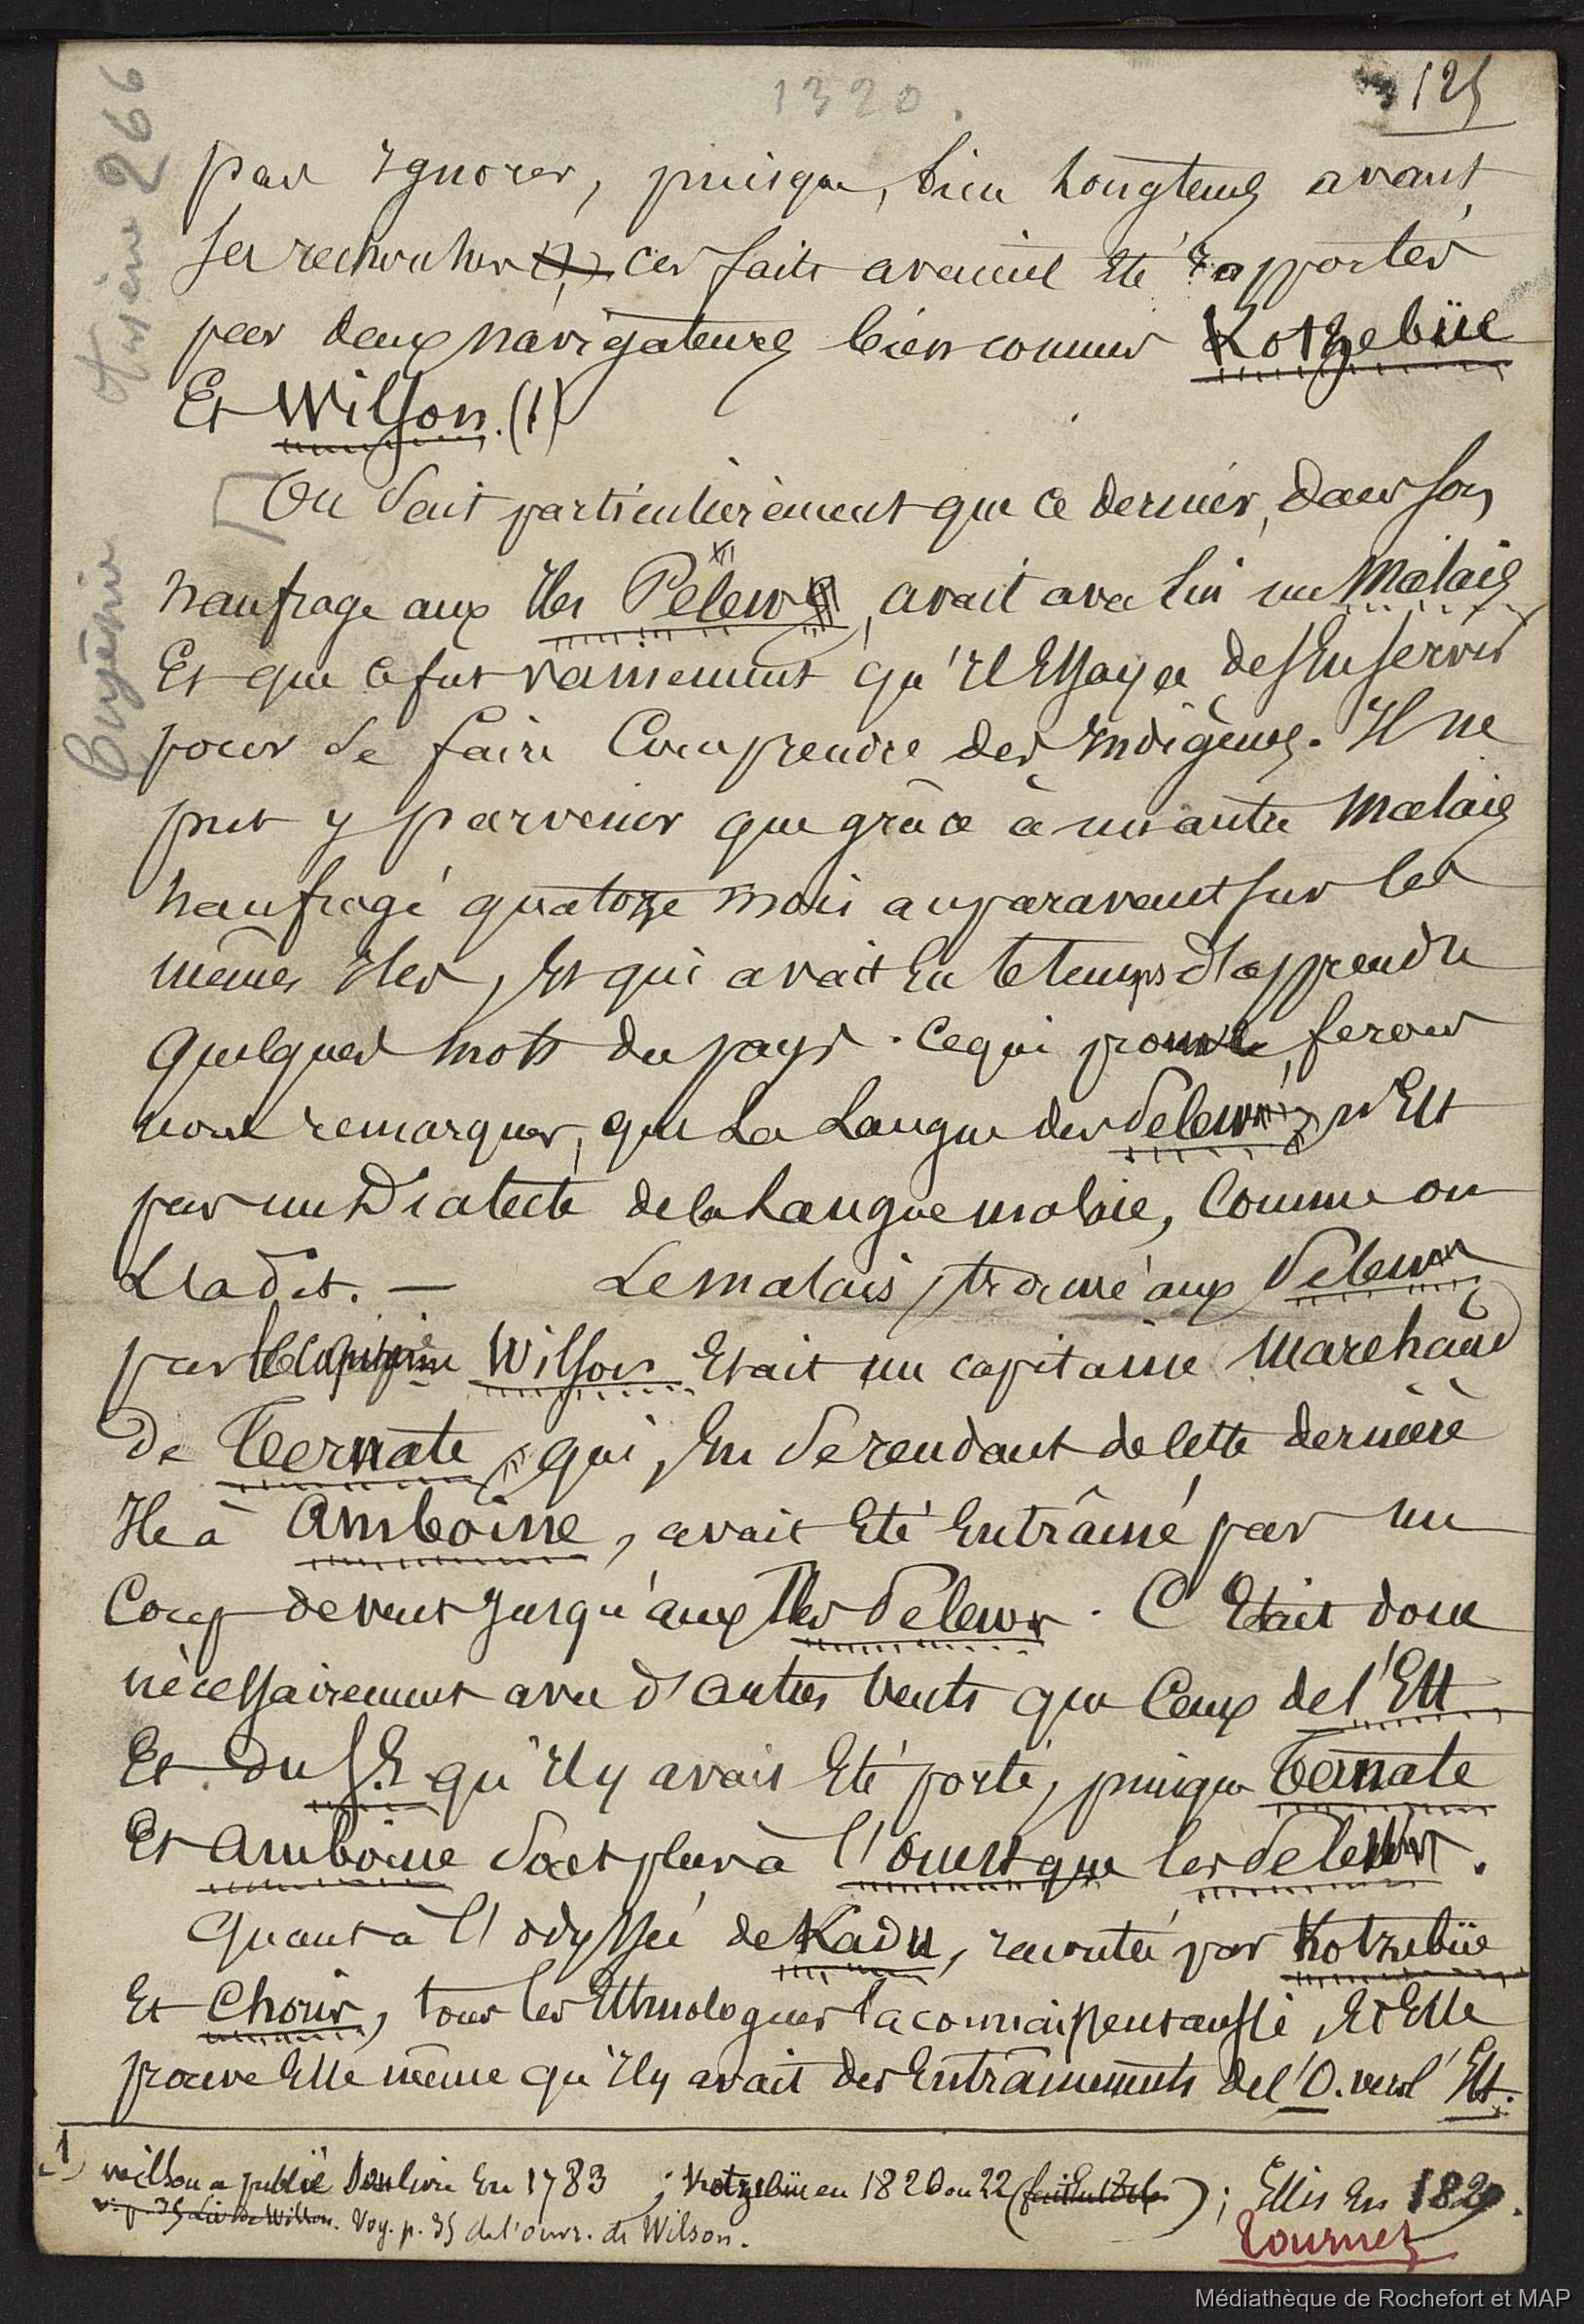 1320.
125
pas ignorer, puisque, bien longtems avant
ses recherches ces faits avaient été rapportés
par deux navigateurs bien connus Kotzebüe
Et Wilson. (1)
On sait particulièrement que ce dernier, dans son
naufrage aux Iles Pelew, avait avec lui un Malais
Et que ce fut vainement qu'il Essaya de s'En servir
pour se faire Comprendre des indigènes. Il ne
put y parvenir que grâce à un autre Malais
naufragé quatorze mois auparavant sur les
mêmes Iles, Et qui avait Eu le temps d'apprendre
quelques mots du pays. Ce qui prouve, ferons
nous remarquer, que la Langue des Pelew n'Est
pas un Dialecte de la Langue malaie, Comme on
L'a dit. — Le malais, trouvé aux Pelew
par le capitaine Wilson Etait un capitaine marchand
de Ternate qui, En se rendant de cette dernière
Ile à Amboine, avait Eté Entraîné par un
Coup de vent jusqu'aux Iles Pelew. C'Etait donc
nécessairement avec d'autres vents que Ceux de l'Est
Et du S.E. qu'il y avait Eté porté, puisque Ternate
Et Amboine sont plus à l'ouest que les Pelew.
Quant à l'odyssée de Kadu, racontée par Kotzebüe
Et Choris, tous les Ethnologues la connaissent aussi, Et Elle
prouve Elle même qu'il y avait des Entraînements de l'O. vers l'Est.
1) wilson a publié son livre En 1783 ; Kotzebüe en 1820 ou 22 ; Ellis En 1829.
v. p. 35 Liv. de Wilson. Voy. p. 35 de l'ouvr. de Wilson.
Tournez
Arsène 266
Médiathèque de Rochefort et MAP